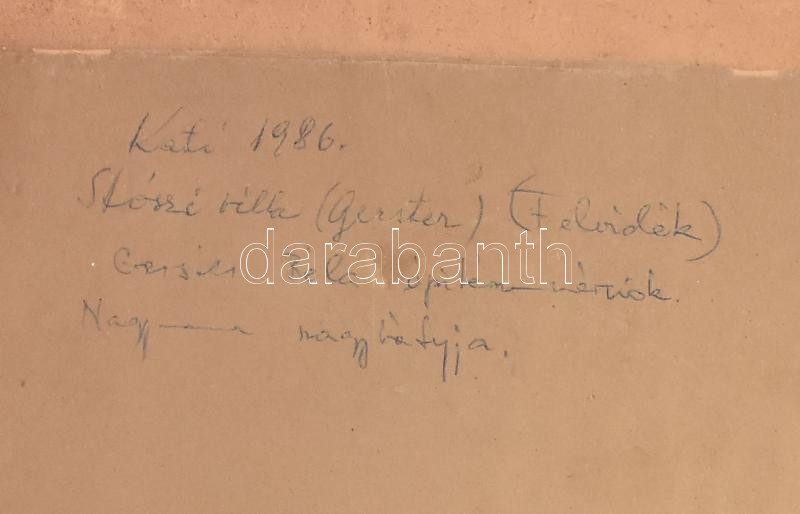 Kati 1986.
Stószi villa (Gerster) (Felvidék)
Gerster Béla építész mérnök.
Nagymama nagybátyja.
darabanth